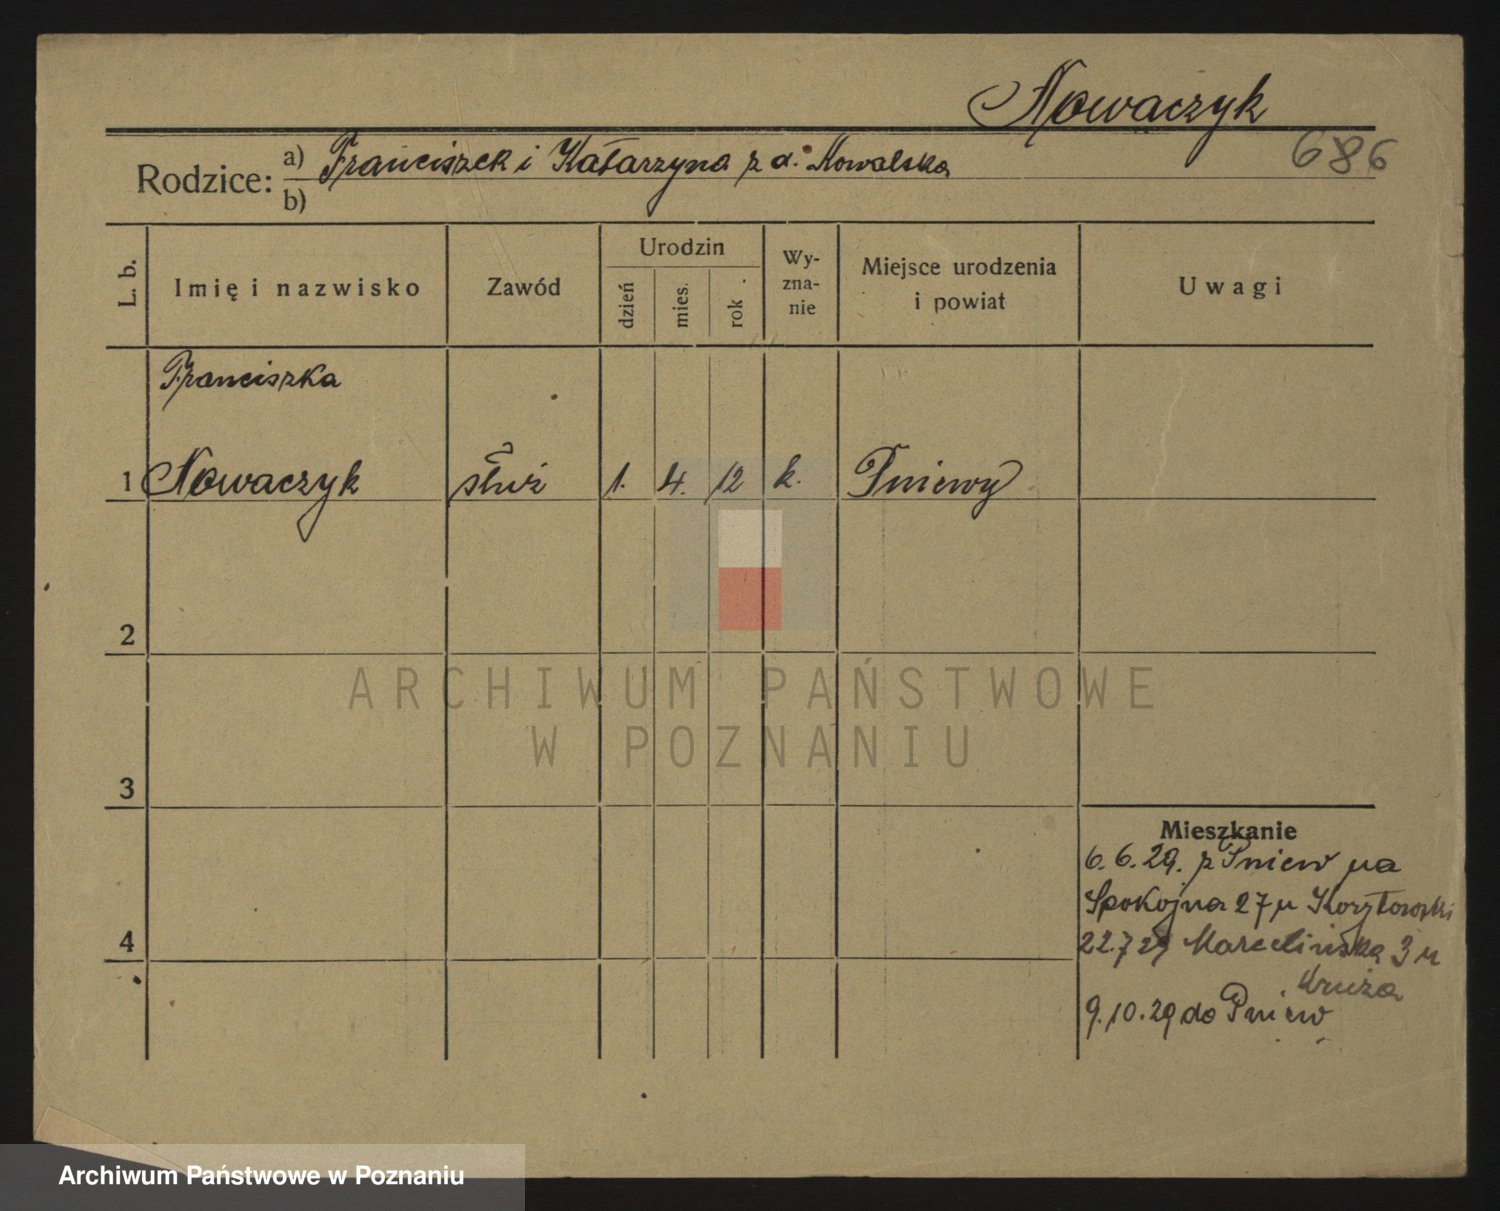 Nowaczyk
686
Rodzice: a) Franciszek i Katarzyna z d. Kowalska
b)
L. b. Imię i nazwisko Zawód Urodzin dzień mies. rok Wy-zna-nie Miejsce urodzenia i powiat Uwagi
Franciszka
1 Nowaczyk służ 1. 4. 12 k. Pniewy
2
ARCHIWUM PAŃSTWOWE
W POZNANIU
3
Mieszkanie
6.6.29. z Pniew na
Spokojna 27 u
4
22.7.29 Marcelińska 3 u
Kruża
9.10.29 do Pniew
Archiwum Państwowe w Poznaniu